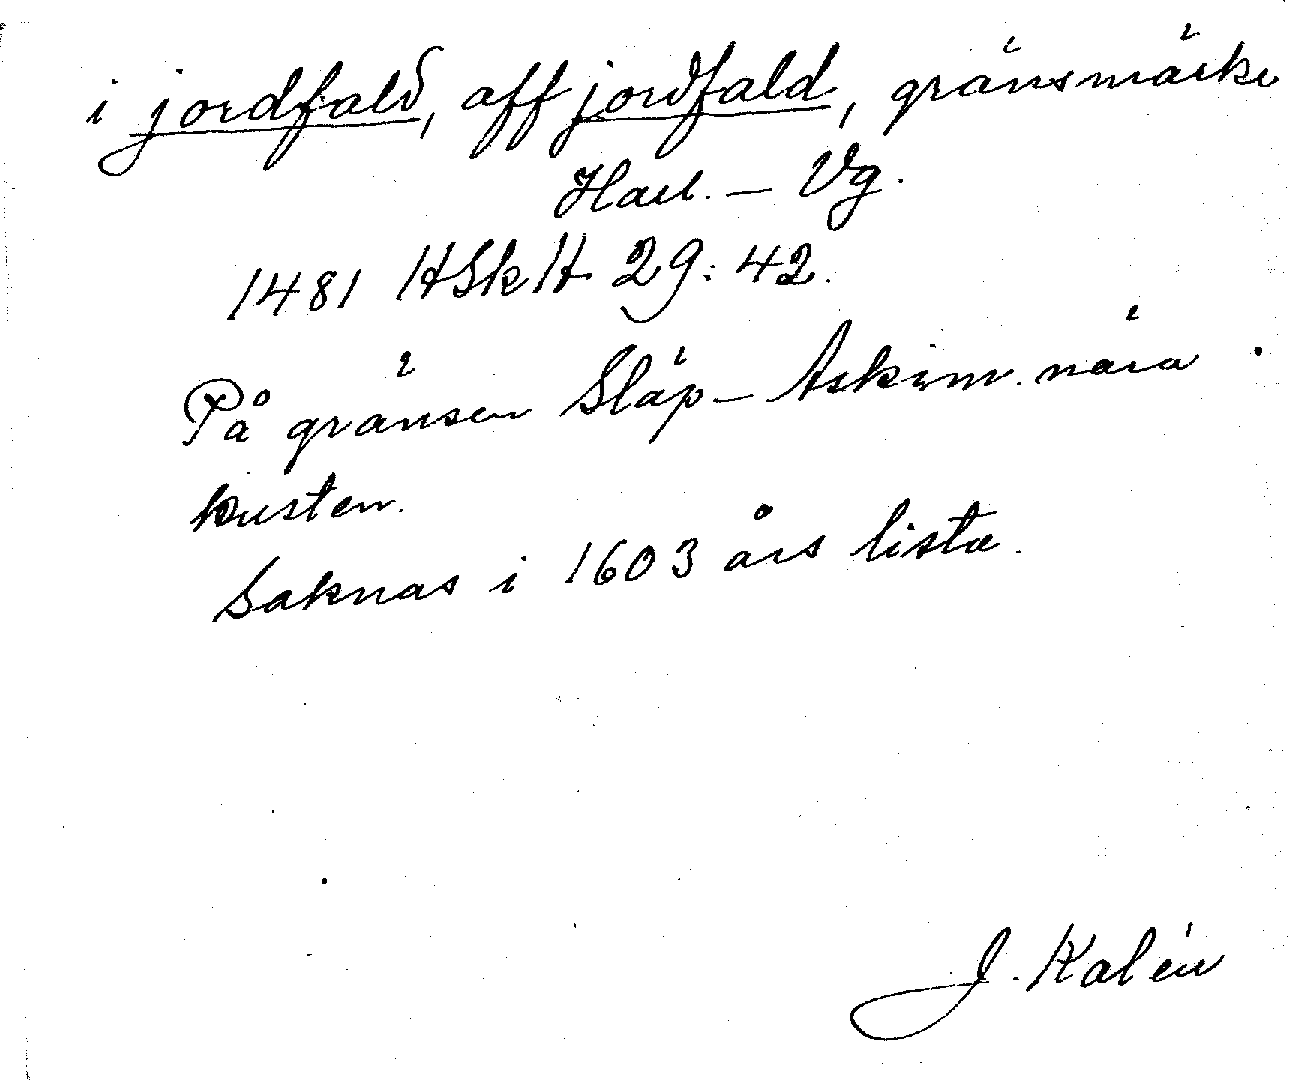 i jordfald, aff jordfald, gränsmärke
Hall. – Vg.
1481 HSkH 29:42.
På gränsen Släp – Askim nära
kusten.
Saknas i 1603 års lista.
J. Kalén